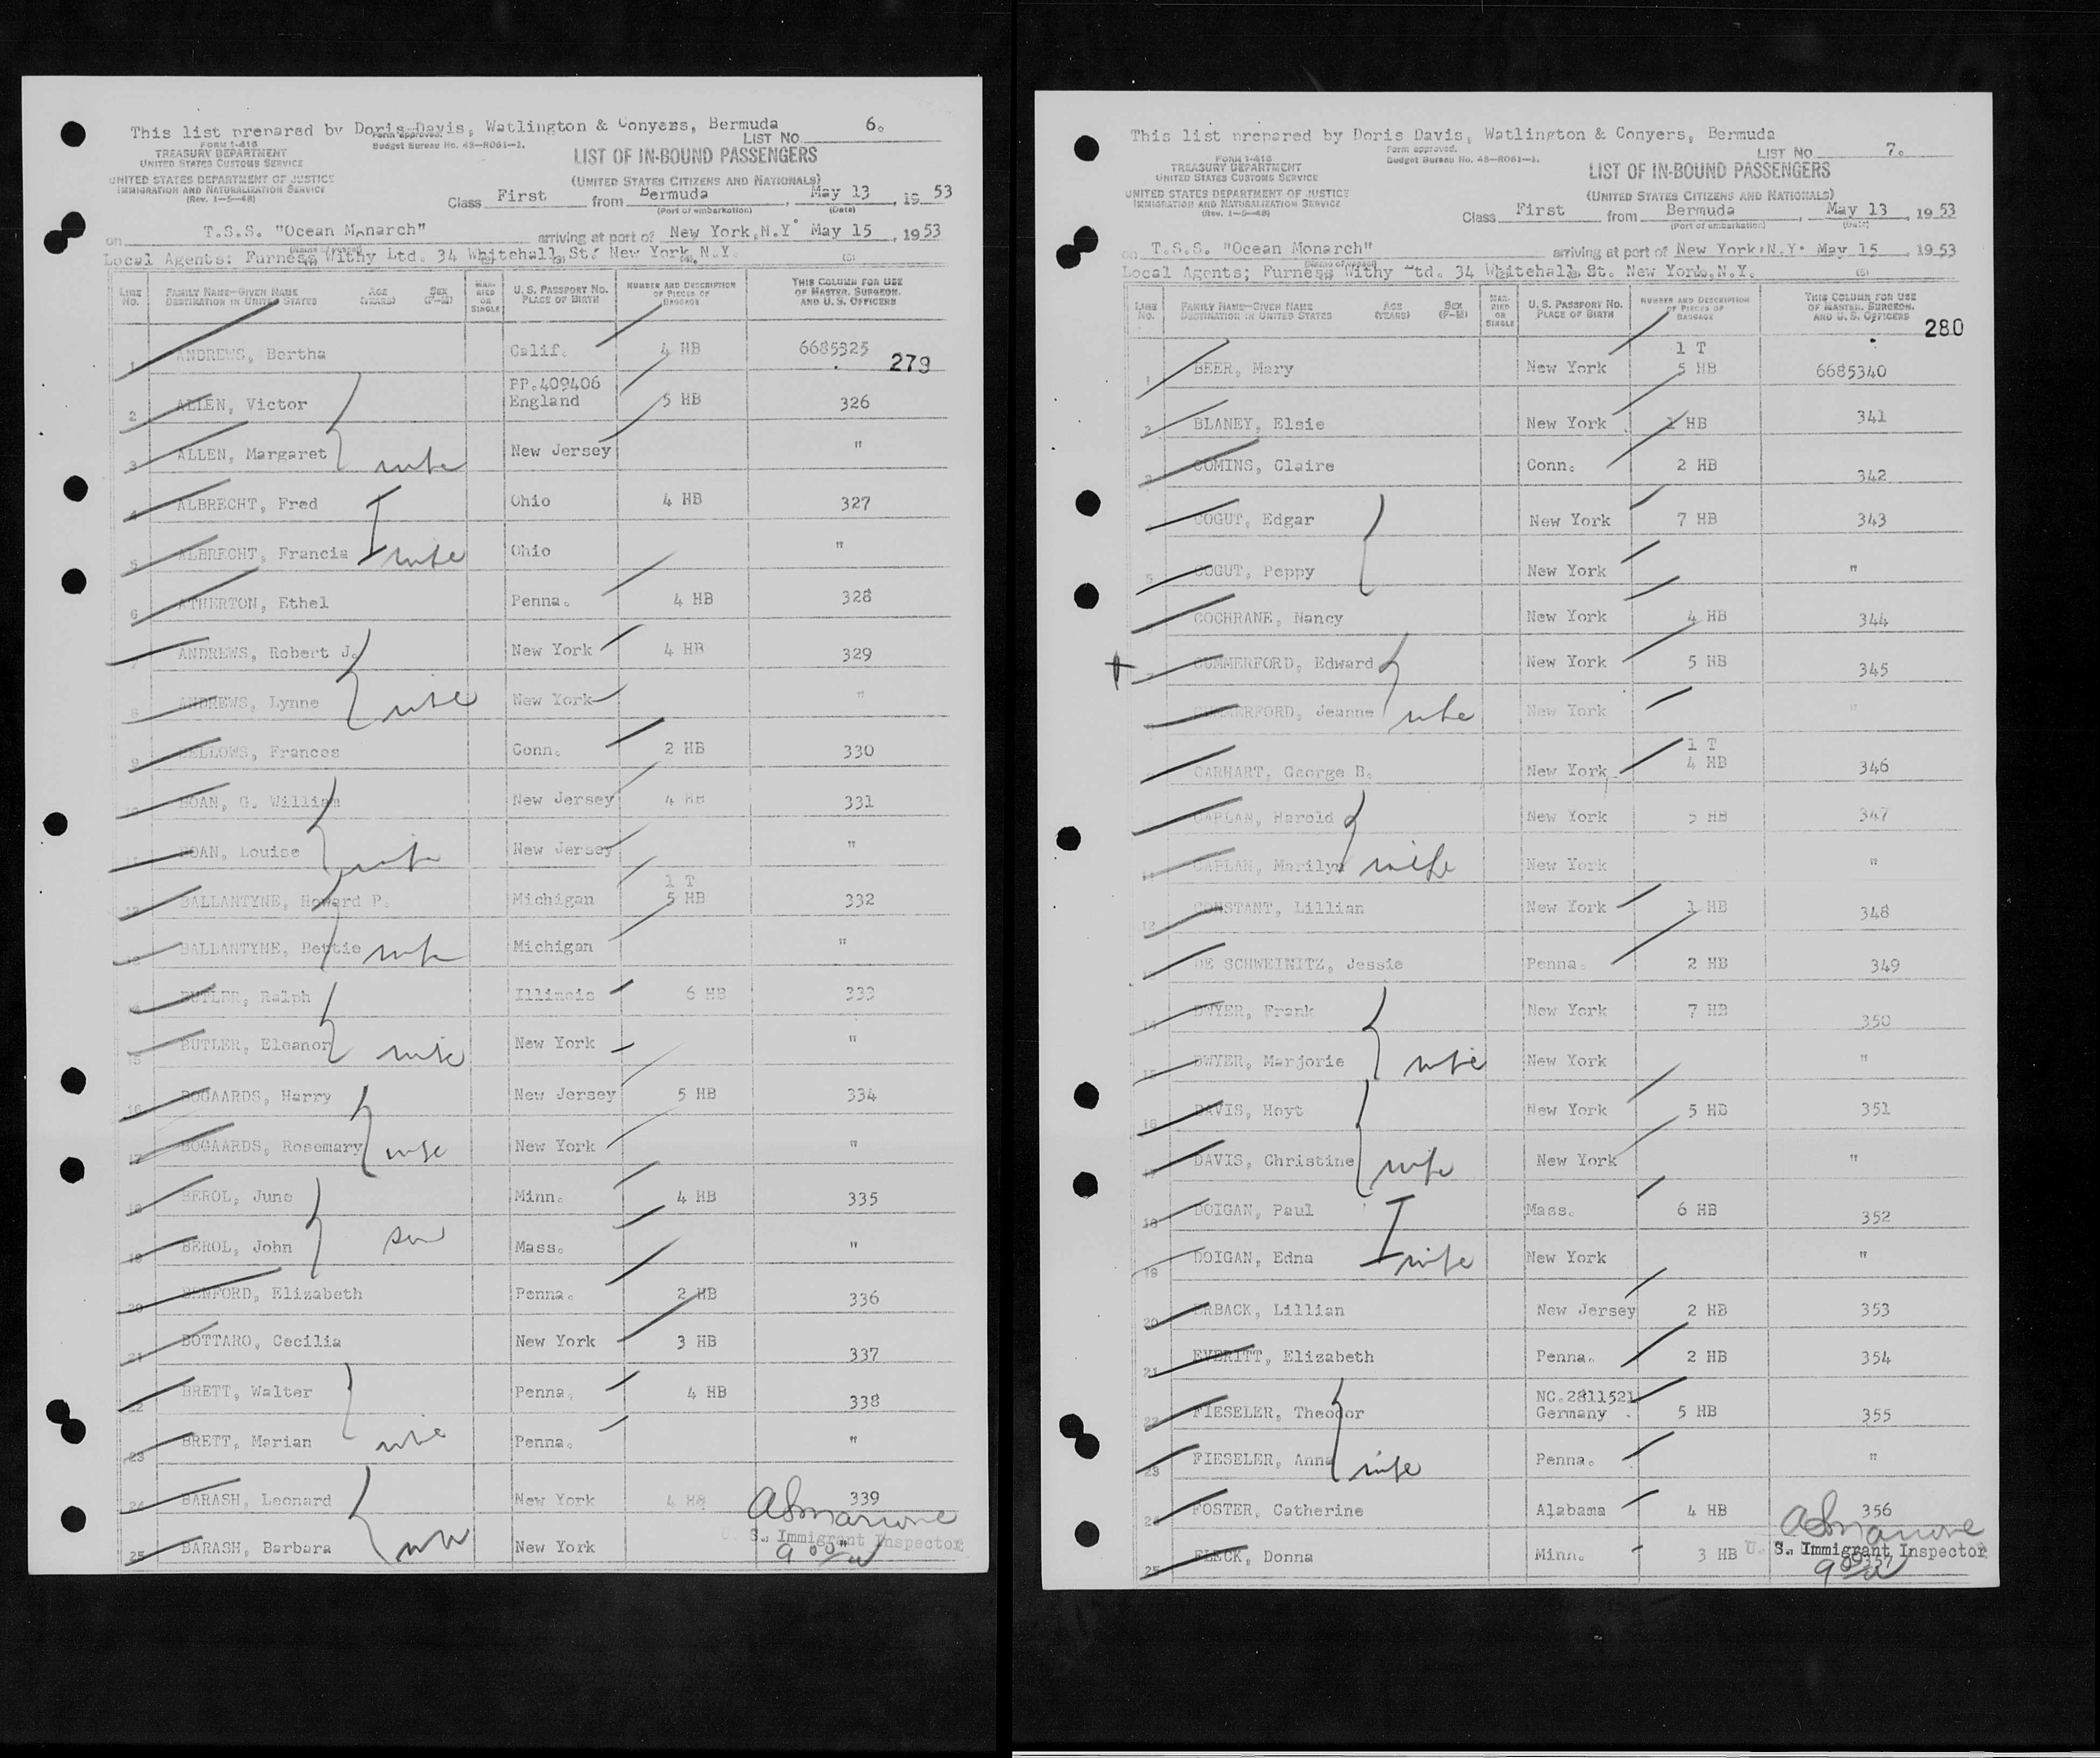 This list prepared by Doris Davis, Watlington & Conyers, Bermuda
6.
Form approved.
Budget Bureau No. 43—R061—1.
LIST NO.
FORM I-416
TREASURY DEPARTMENT
UNITED STATES CUSTOMS SERVICE
UNITED STATES DEPARTMENT OF JUSTICE
IMMIGRATION AND NATURALIZATION SERVICE
(Rev. 1—5—48)
LIST OF IN-BOUND PASSENGERS
(UNITED STATES CITIZENS AND NATIONALS)
Class First from Bermuda, May 13, 1953
(Port of embarkation) (Date)
on T.S.S. "Ocean Monarch" arriving at port of New York, N.Y. May 15, 1953
Local Agents: Furness Withy Ltd. 34 Whitehall St. New York, N.Y.
LINE NO. FAMILY NAME—GIVEN NAME DESTINATION IN UNITED STATES AGE (YEARS) SEX (F-M) MARRIED OR SINGLE U. S. PASSPORT NO. PLACE OF BIRTH NUMBER AND DESCRIPTION OF PIECES OF BAGGAGE THIS COLUMN FOR USE OF MASTER, SURGEON, AND U. S. OFFICERS
1 ANDREWS, Bertha Calif. 4 HB 6685325
279
2 ALLEN, Victor PP.409406 England 5 HB 326
3 ALLEN, Margaret wife New Jersey "
4 ALBRECHT, Fred Ohio 4 HB 327
5 ALBRECHT, Francis wife Ohio "
6 ATHERTON, Ethel Penna. 4 HB 328
7 ANDREWS, Robert J. New York 4 HB 329
8 ANDREWS, Lynne wife New York "
9 BELLOWS, Frances Conn. 2 HB 330
10 BOAN, G. William New Jersey 4 HB 331
11 BOAN, Louise wife New Jersey "
12 BALLANTYNE, Howard P. Michigan 1 T 5 HB 332
13 BALLANTYNE, Bettie wife Michigan "
14 BUTLER, Ralph Illinois 6 HB 333
15 BUTLER, Eleanor wife New York "
16 BOGAARDS, Harry New Jersey 5 HB 334
17 BOGAARDS, Rosemary wife New York "
18 BEROL, June Minn. 4 HB 335
19 BEROL, John son Mass. "
20 BENFORD, Elizabeth Penna. 2 HB 336
21 BOTTARO, Cecilia New York 3 HB 337
22 BRETT, Walter Penna. 4 HB 338
23 BRETT, Marian wife Penna. "
24 BARASH, Leonard New York 4 HB 339
25 BARASH, Barbara wife New York
U. S. Immigrant Inspector
This list prepared by Doris Davis, Watlington & Conyers, Bermuda
Form approved.
Budget Bureau No. 43—R061—1.
LIST NO. 7.
FORM I-416
TREASURY DEPARTMENT
UNITED STATES CUSTOMS SERVICE
UNITED STATES DEPARTMENT OF JUSTICE
IMMIGRATION AND NATURALIZATION SERVICE
(Rev. 1—5—48)
LIST OF IN-BOUND PASSENGERS
(UNITED STATES CITIZENS AND NATIONALS)
Class First from Bermuda, May 13, 1953
(Port of embarkation) (Date)
on T.S.S. "Ocean Monarch" arriving at port of New York, N.Y. May 15, 1953
(Name of vessel)
Local Agents; Furness Withy Ltd. 34 Whitehall St. New York, N.Y.
LINE NO. FAMILY NAME—GIVEN NAME DESTINATION IN UNITED STATES AGE (YEARS) SEX (F-M) MARRIED OR SINGLE U. S. PASSPORT NO. PLACE OF BIRTH NUMBER AND DESCRIPTION OF PIECES OF BAGGAGE THIS COLUMN FOR USE OF MASTER, SURGEON, AND U. S. OFFICERS
280
1 BEER, Mary New York 1 T 5 HB 6685340
2 BLANEY, Elsie New York 1 HB 341
3 COMINS, Claire Conn. 2 HB 342
COGUT, Edgar New York 7 HB 343
5 COGUT, Peppy New York "
COCHRANE, Nancy New York 4 HB 344
7 CUMMERFORD, Edward New York 5 HB 345
CUMMERFORD, Jeanne wife New York "
CARHART, George B. New York 1 T 4 HB 346
CAPLAN, Harold New York 5 HB 347
11 CAPLAN, Marilyn wife New York "
12 CONSTANT, Lillian New York 1 HB 348
DE SCHWEINITZ, Jessie Penna. 2 HB 349
14 DWYER, Frank New York 7 HB 350
15 DWYER, Marjorie wife New York "
16 DAVIS, Hoyt New York 5 HB 351
17 DAVIS, Christine wife New York "
18 DOIGAN, Paul Mass. 6 HB 352
19 DOIGAN, Edna wife New York "
20 ERBACK, Lillian New Jersey 2 HB 353
21 EVERITT, Elizabeth Penna. 2 HB 354
22 FIESELER, Theodor NC.2811521 Germany 5 HB 355
23 FIESELER, Anna wife Penna. "
24 FOSTER, Catherine Alabama 4 HB 356
25 FLECK, Donna Minn. 3 HB 357
U. S. Immigrant Inspector